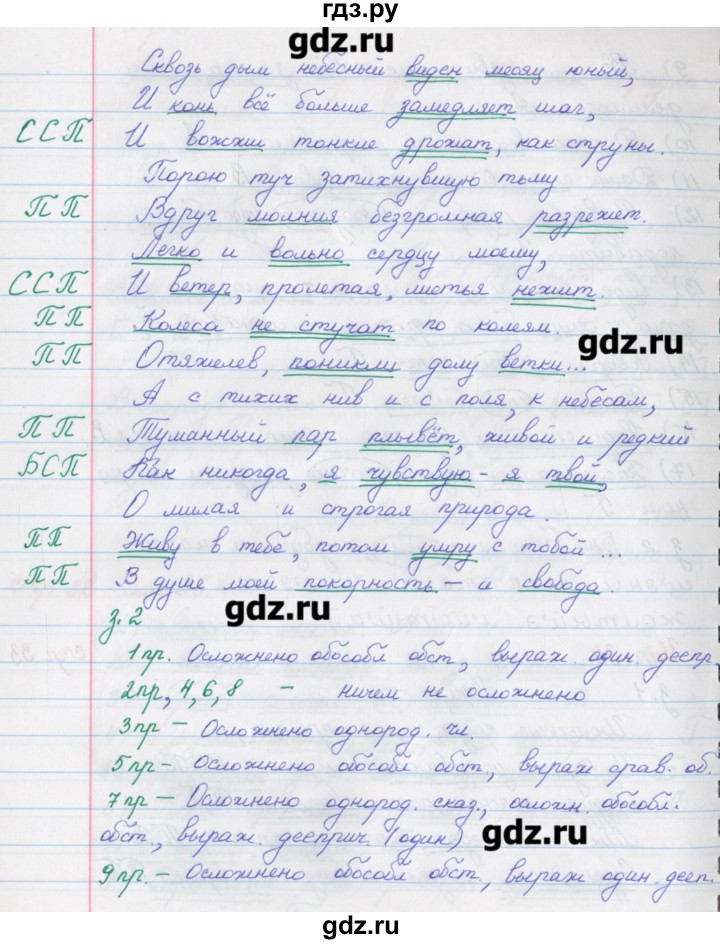 гдз.ру
gdz.ru
Сквозь дым небесный виден месяц юный,
И конь всё больше замедляет шаг,
ССП И вожжи тонкие дрожат, как струны.
Порою туч затихнувшую тьму
ПП Вдруг молния безгромная разрежет.
Легко и вольно сердцу моему,
ССП И ветер, пролетая, листья нежит.
ПП Колеса не стучат по колеям.
gdz.ru
ПП Отяжелев, поникли долу ветки...
А с тихих нив и с поля, к небесам,
ПП Туманный пар плывёт, живой и редкий
БСП Как никогда, я чувствую - я твой,
О милая и строгая природа.
ПП Живу в тебе, потом умру с тобой...
ПП В душе моей покорность - и свобода.
gdz.ru
з.2
1 пр. Осложнено обособл обст., выраж. один. деепр.
2 пр, 4, 6, 8 - ничем не осложнено
3 пр - Осложнено однород. чл.
5 пр - Осложнено обособл обст., выраж срав. об.
7 пр - Осложнено однород. сказ., ослож. обособл.
обст., выраж. дееприч. (один)
gdz.ru
9 пр. - Осложнено обособл обст., выраж один. дееп.
gdz.ru